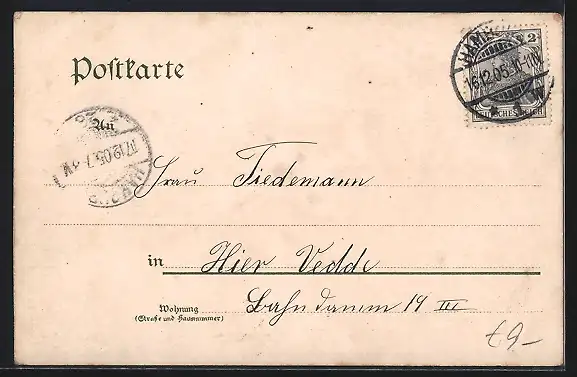 Postkarte
HAMBURG
2
16.12.05. 10-11 N
1
DEUTSCHES REICH
An
17.12.05. 7-8 V
Frau Tiedemann
in Hier Vedde
Wohnung Bahndamm 19 III
(Straße und Hausnummer)
€9-